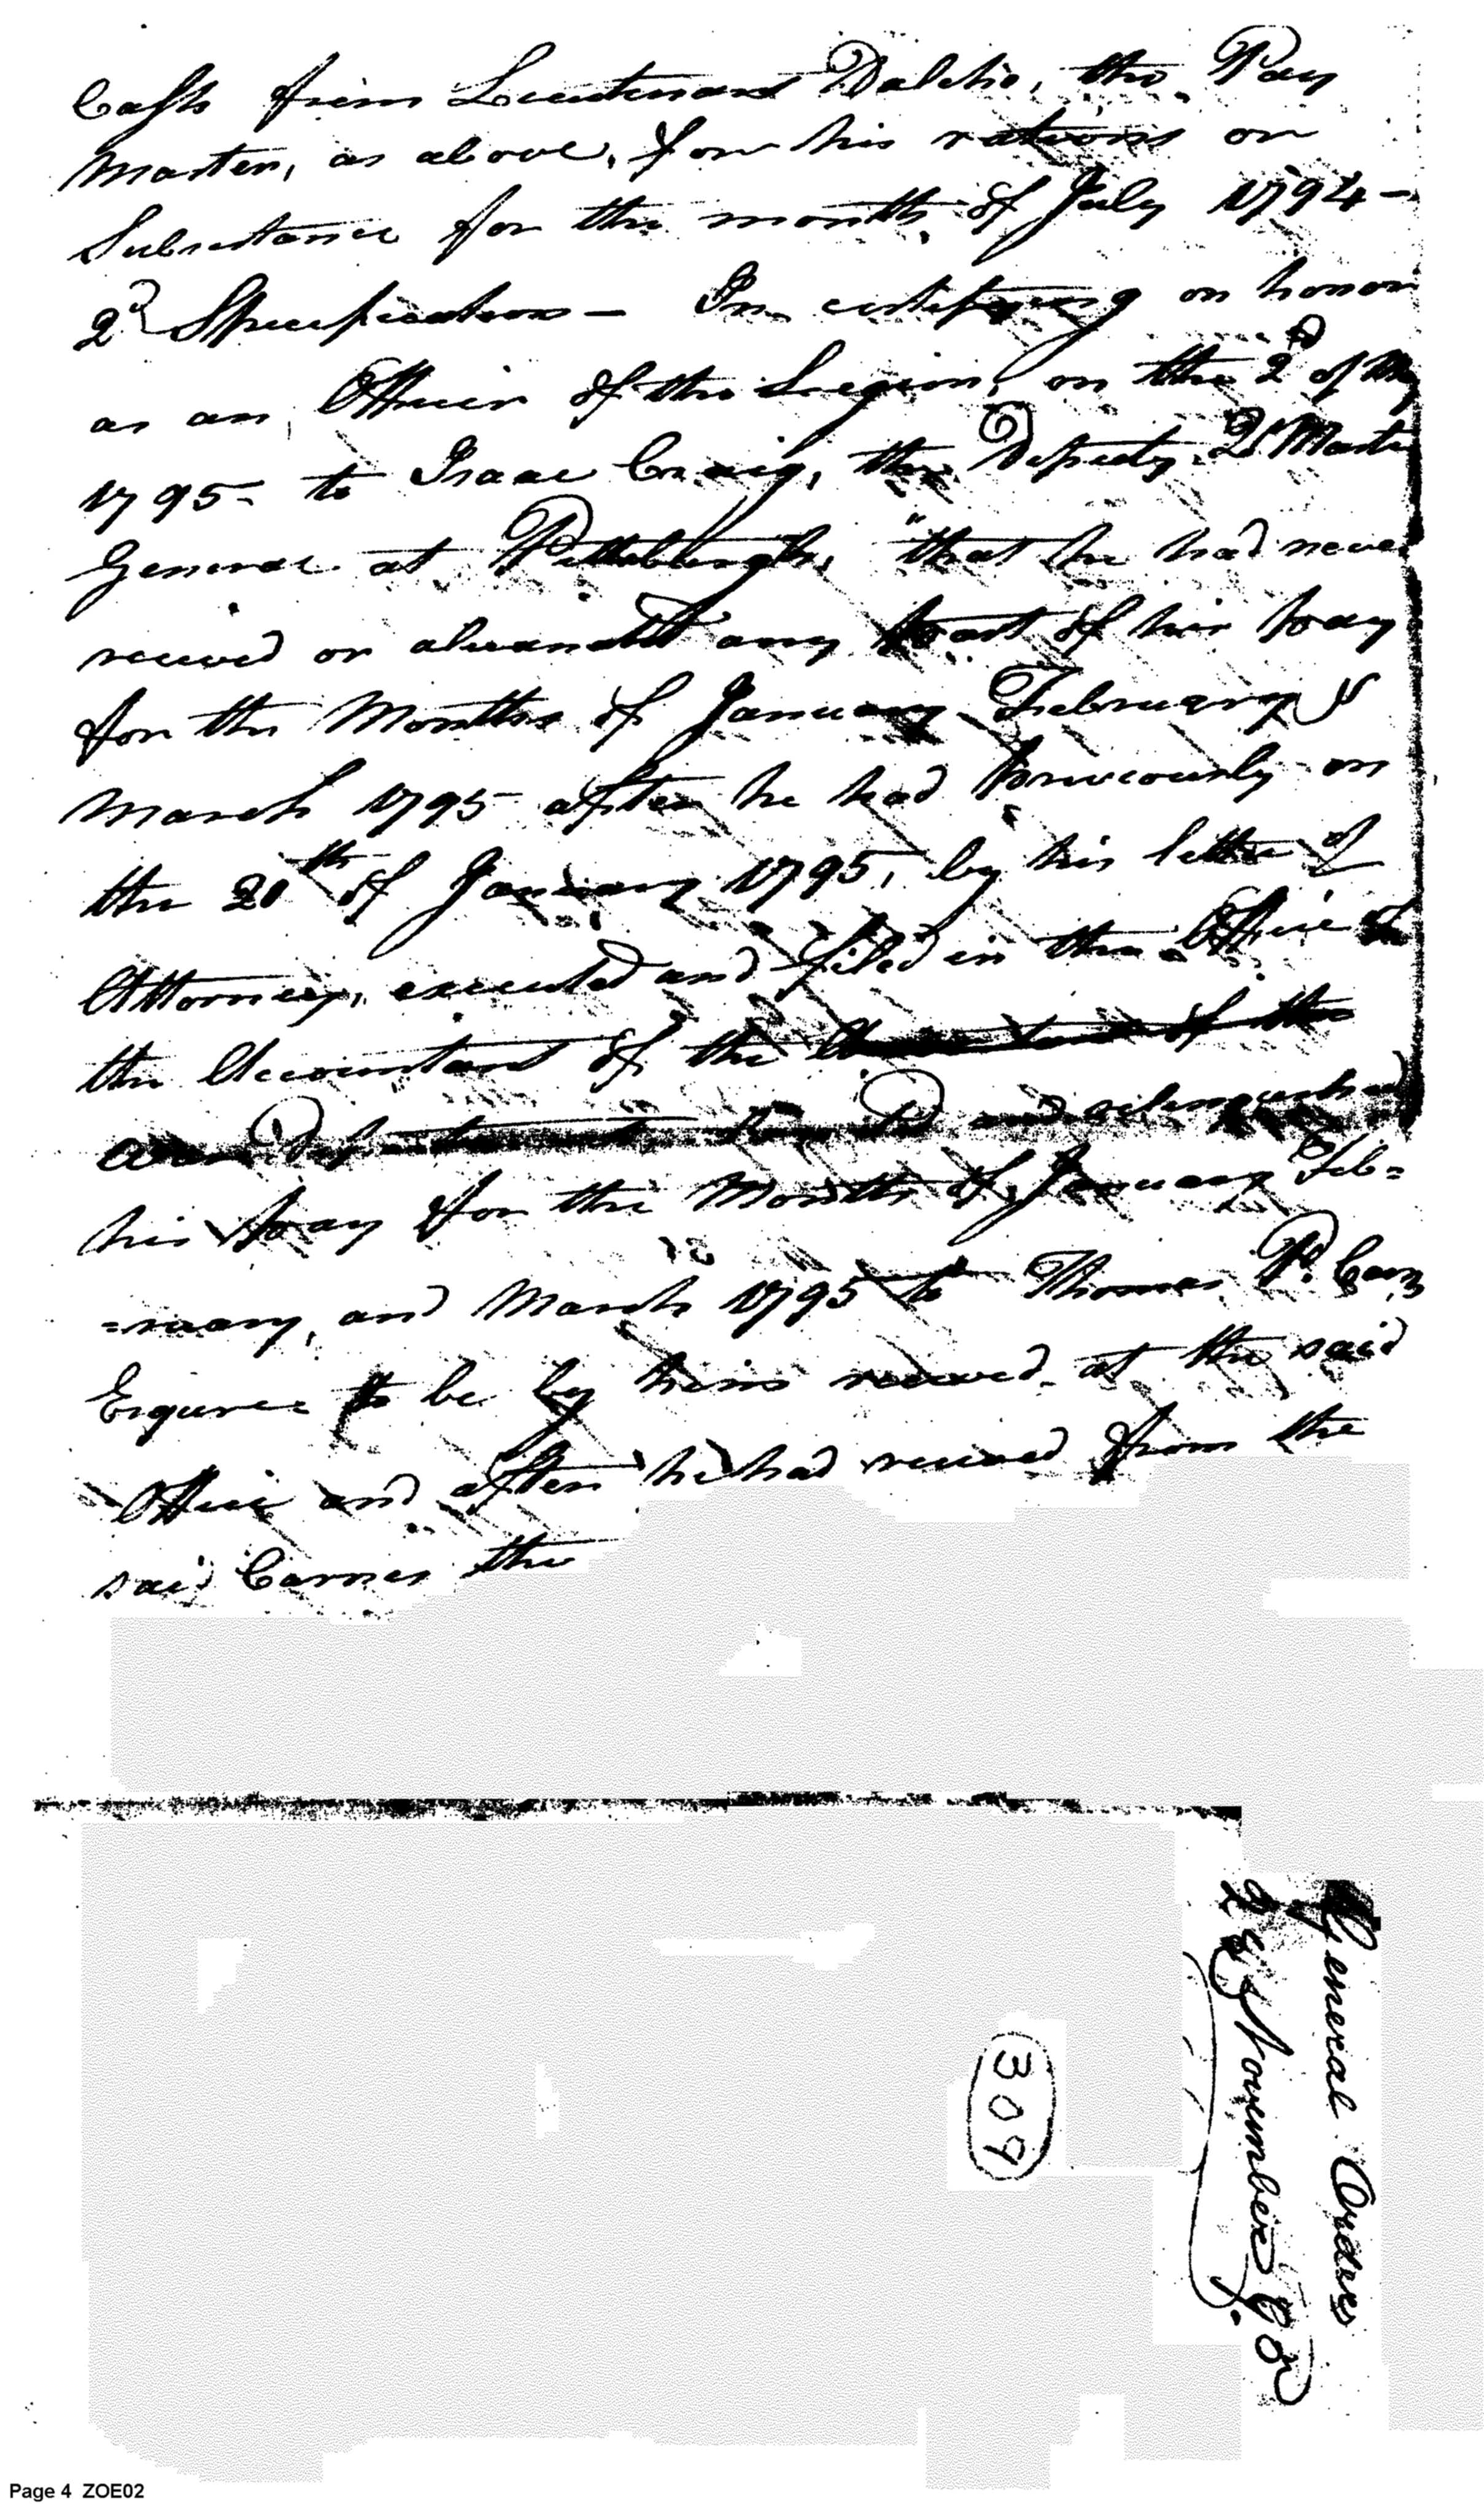 Cash from Lieutenant Dalcho, the Pay
Master, as above, for his rations or
Subsistance for the month of July 1794 -
2d Specification - In certifying on honor
as an Officer of the Legion, on the 2d of
1795 - to Isaac Craig, the Deputy Qr Master
General at Pittsburgh, "that he had never
received or alienated any part of his pay
for the Months of January February &
March 1795 - after he had previously on
the 20th of January 1795, by his letter of
Attorney, executed and filed in the Office of
the Accountant of the Accountant of the
War Department and relinquished
his pay for the Months of January Feb=
=ruary, and March 1795 to Thomas P. Carn
Esquire to be by him received at the said
Office and after he had received from the
said Carnes the
General Orders
28 November 95
309
Page 4 ZOE02